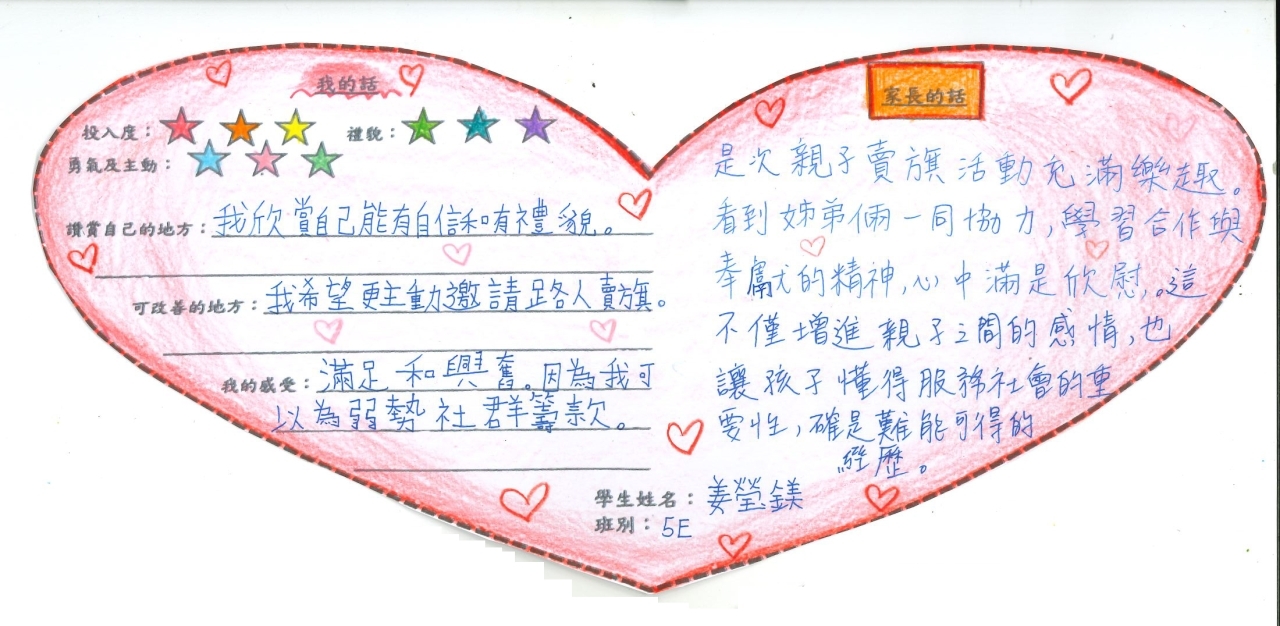 我的話
投入度： 禮貌：
勇氣及主動：
讚賞自己的地方：我欣賞自己能有自信和有禮貌。
可改善的地方：我希望更主動邀請路人賣旗。
我的感受：滿足和興奮。因為我可
以為弱勢社群籌款。
家長的話
是次親子賣旗活動充滿樂趣。
看到姊弟倆一同協力,學習合作與
奉獻的精神,心中滿是欣慰,。這
不僅增進親子之間的感情,也
讓孩子懂得服務社會的重
要性,確是難能可得的
經歷。
學生姓名：姜瑩鎂
班別：5E